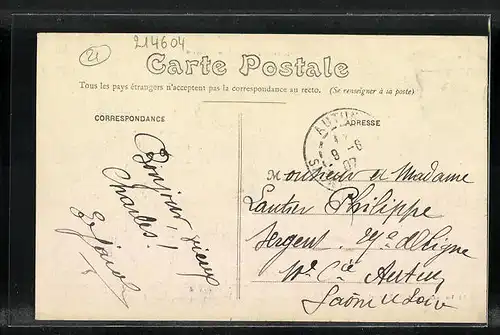 21
214604
Carte Postale
Tous les pays étrangers n'acceptent pas la correspondance au recto. (Se renseigner à sa poste)
CORRESPONDANCE
ADRESSE
AUTUN
9 - 6
07
Bonjour,
Charles!
Monsieur et Madame
Lautier Philippe
Sergent
Cie Autun
Saône et Loire